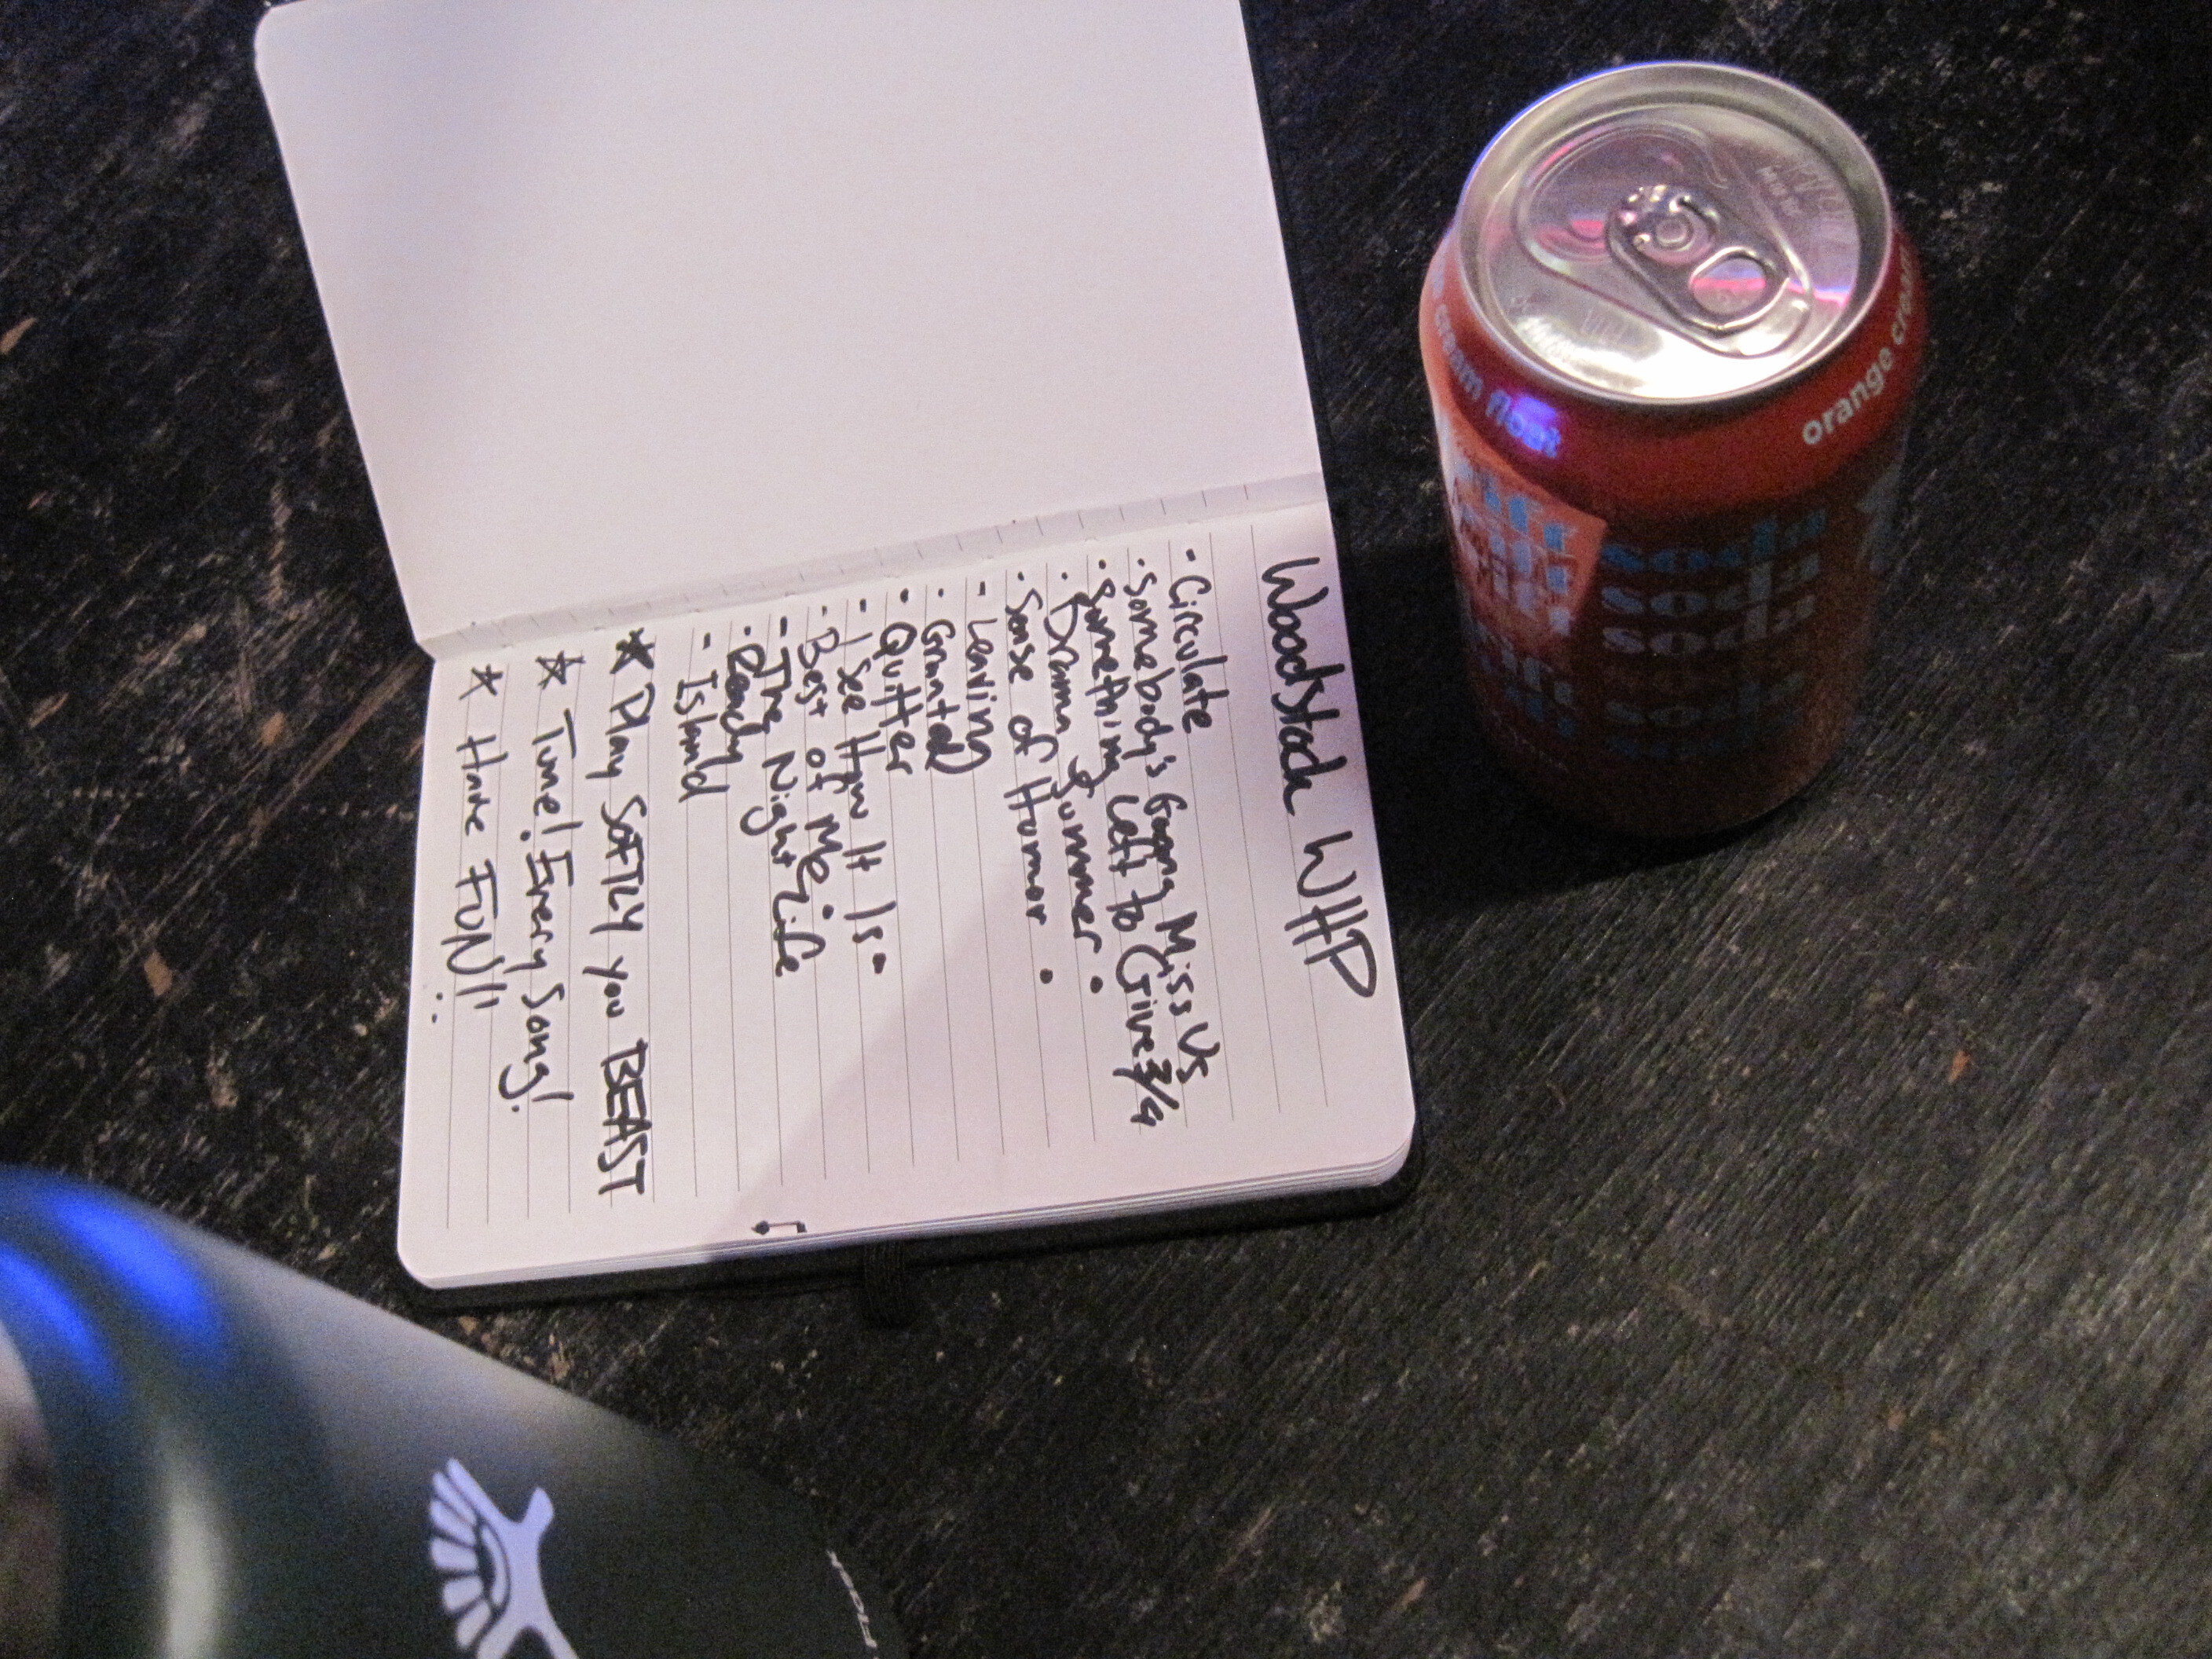 Woodstock WHP
- Circulate
- Somebody's Gonna Miss Us
- Something Left to Give 3/4
- Drama Summer •
- Sense of Humor •
- Leaving
- Granted
- Quitter
- I See How It Is •
- Best of Me
- The Night Life
- Ready
- Island
☆ Play SOFTLY you BEAST
☆ Time! Every Song!
☆ Have FUN!!
cream float
orange cream
soda
soda
soda
soda